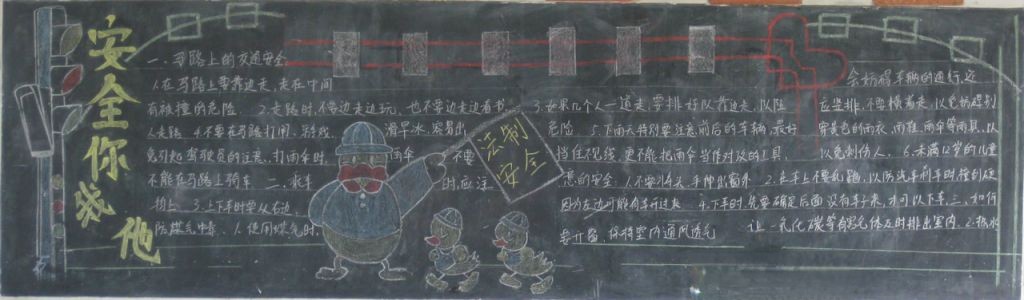 安全你我他
一、马路上的交通安全
法制
安全
1.在马路上要靠边走,走在中间
会妨碍车辆的通行,还
有被撞的危险。2.走路时,不要边走边玩,也不要边走边看书。3.如果几个人一道走,要排好队靠边走,以险
应竖排,不要横着走,以免妨碍别
人走路。4.不要在马路打闹、游戏,
滑旱冰,容易出
危险。5.下雨天特别要注意前后的车辆,最好
穿黄色的雨衣、雨鞋、雨伞等雨具,以
免引起驾驶员的注意,打雨伞时,
雨伞
不要
挡住视线,更不能把雨伞当作对议的工具,
以免刺伤人。6.未满12岁的儿童
不能在马路上骑车。二、乘车
时,应注
意的安全:1.不要将头、手伸出窗外。2.在车上不要乱跑,以防汽车刹车时撞
上。3.上下车时要从右边,
因为左边可能有车开过来。4.下车时,先要确定后面没有车子来,才可以下车。三、如何
防煤气中毒:1.使用煤气时,
要开窗,保持室内通风透气
让一氧化碳等有害气体及时排出室内。2.热水